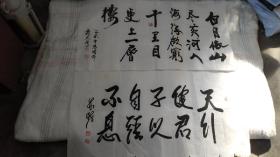 白日依山
尽黄河入
海流欲窮
千里目
更上一層
樓
天行
健君
子以
自强
不息